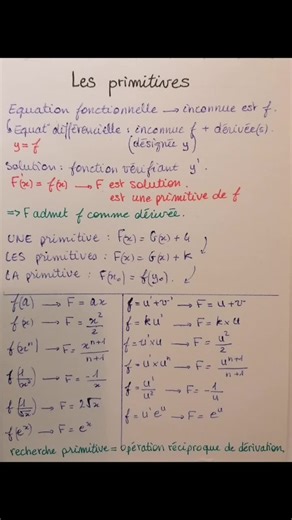 Les primitives
Equation fonctionnelle → inconnue est f.
↳ Equat° différentielle : inconnue f + dérivée(s).
y = f (désignée y)
Solution : fonction vérifiant y'.
F'(x) = f(x) → F est solution.
est une primitive de f
⇒ F admet f comme dérivée.
UNE primitive : F(x) = G(x) + 4
LES primitives : F(x) = G(x) + k
LA primitive : F(x₀) = f(y₀).
f(a) → F = ax
f(x) → F = x²/2
f(xⁿ) → F = xⁿ⁺¹/n+1
f(1/x²) → F = -1/x
f(1/√x) → F = 2√x
f(eˣ) → F = eˣ
f = u' + v' → F = u + v
f = k u' → F = k × u
f = u' × u → F = u²/2
f = u' × uⁿ → F = uⁿ⁺¹/n+1
f = u'/u² → F = -1/u
f = u' eᵘ → F = eᵘ
recherche primitive = opération réciproque de dérivation.